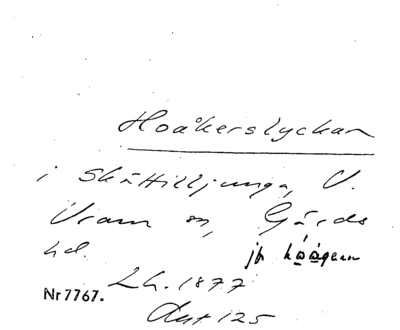 Hoåkerslyckan
i Skättilljunga, V.
Vram sn, Gärds
hd. jfr håågern
Lh. 1877
Nr 7767.
Akt 125